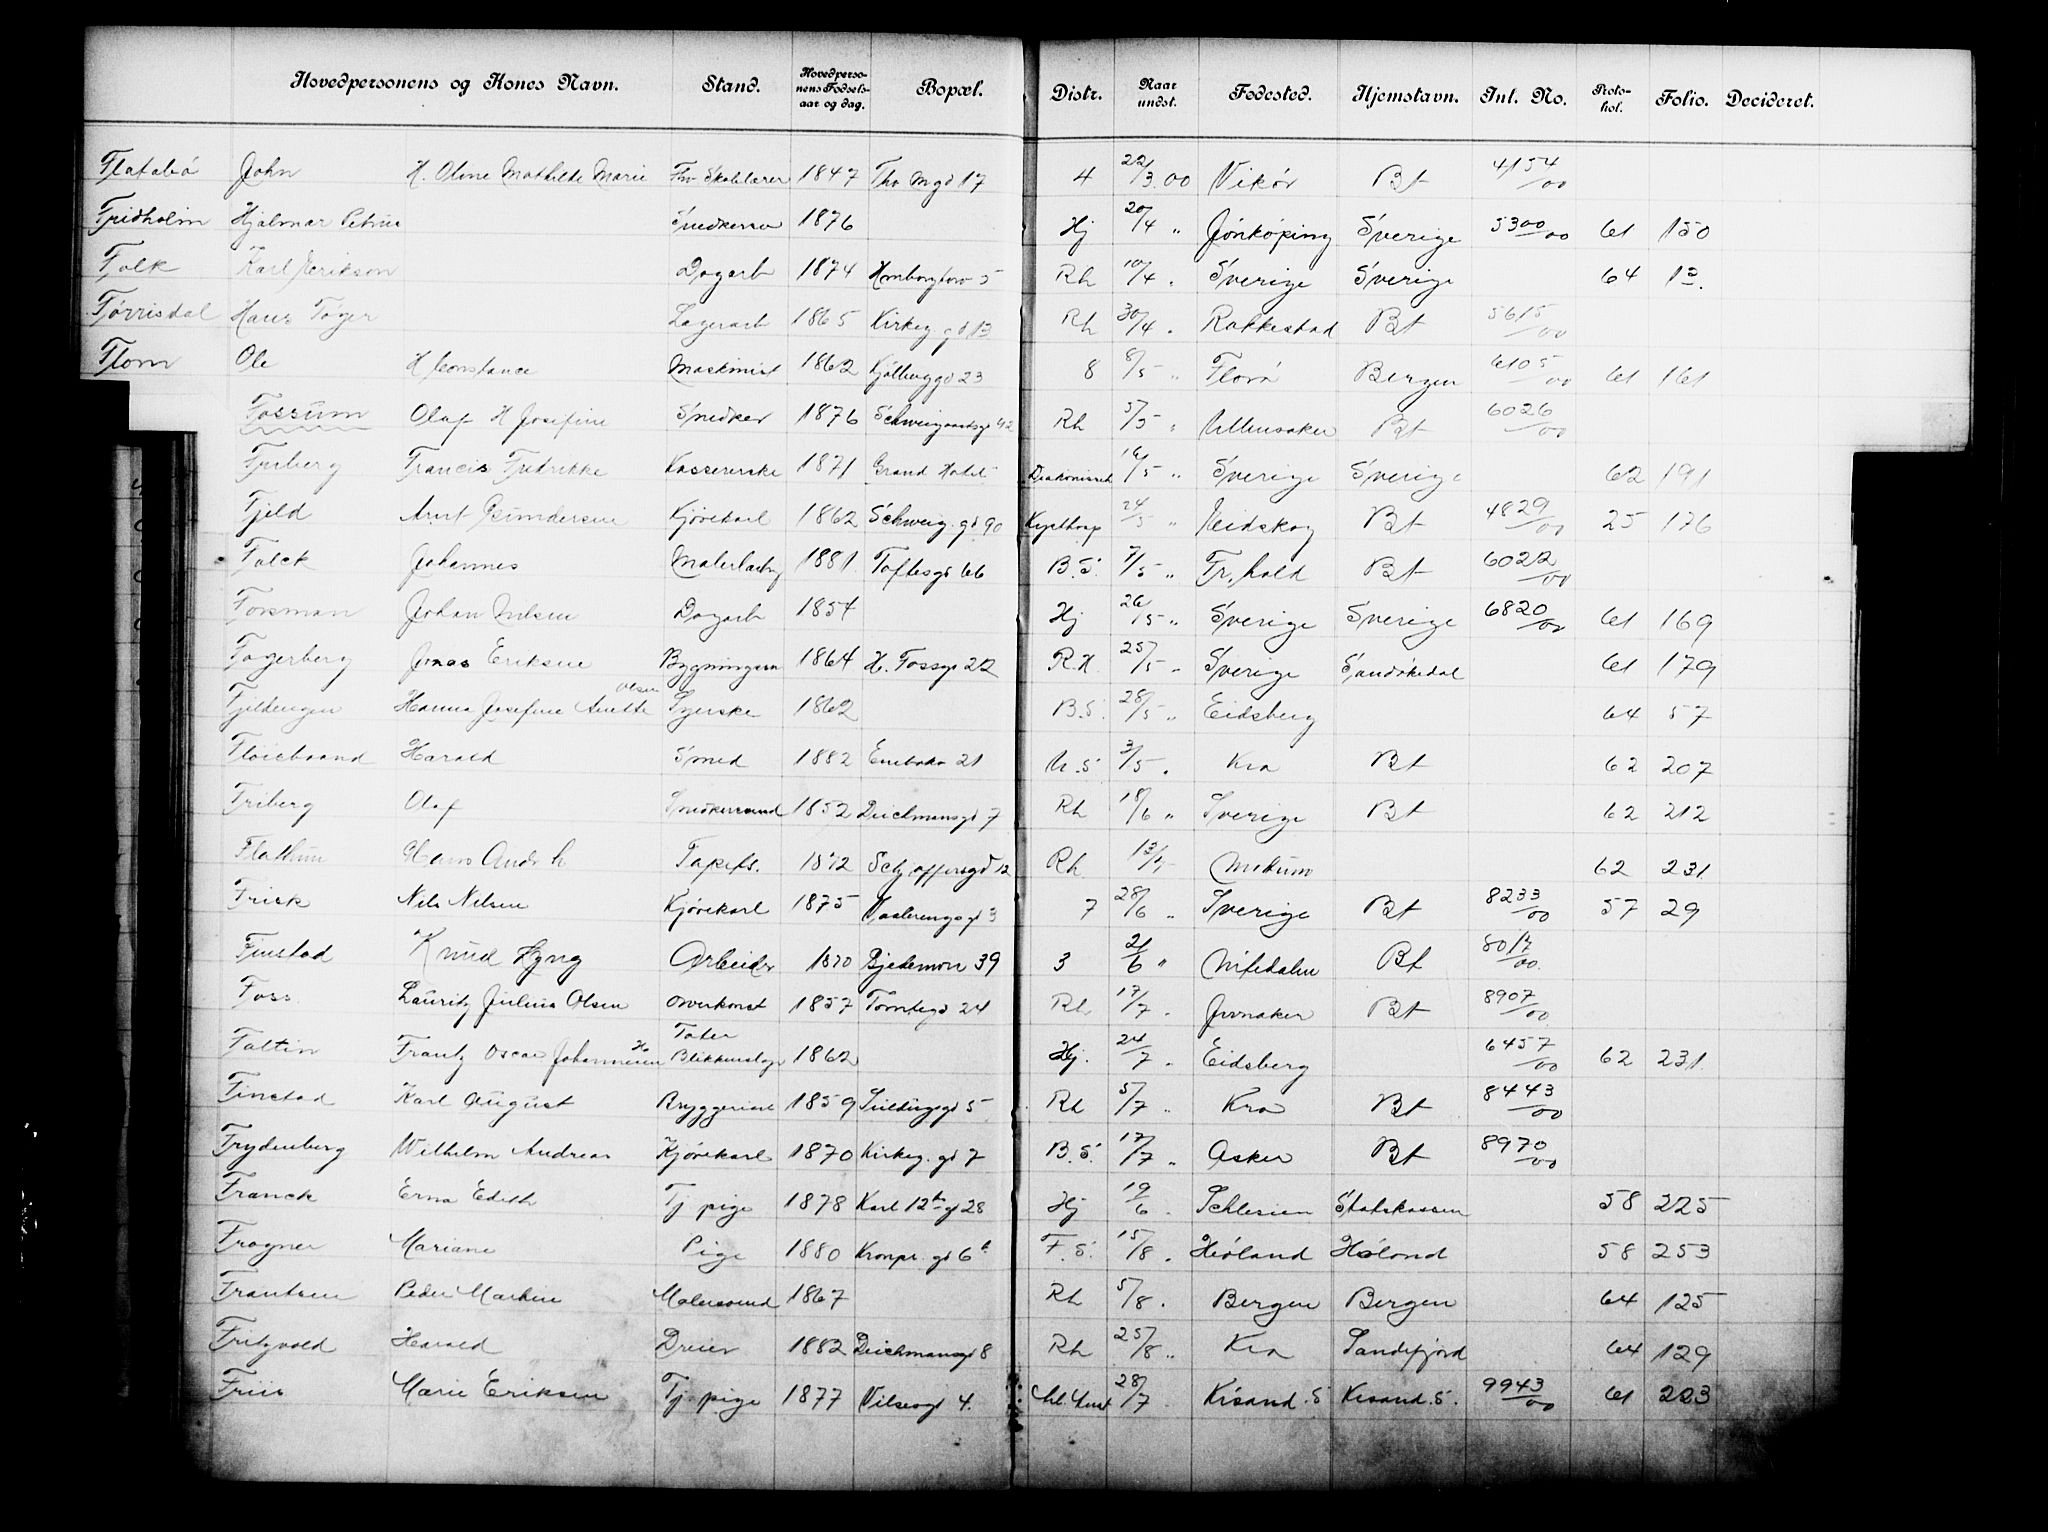 Hovedpersonens og Kones Navn. Stand. Hovedperso-nens Fødsels-aar og dag. Bopæl. Distr. Naar undst. Fødested. Hjemstavn. Inl. No. Proto-kol. Folio. Decideret.
Flatabø John H. Oline Mathilde Marie Fhv Skolelærer 1847 Thv Mgd 17 4 22/3 00 Vikør Bt 4154/00
Fridholm Hjalmar Petrus Snedkersv 1876 Hj 20/4 " Jönköping Sverige 5300/00 61 150
Falk Karl Dagarb 1874 5 Rh 10/4 " Sverige Sverige 64 12.
Tørrisdal Hans Lagerarb 1865 Kirkeg gd 13 Rh 30/4 " Rakkestad Bt 5615/00
Flom Ole H Constance Maskinist 1862 Kjølberggd 23 8 8/5 " Florø Bergen 6105/00 61 161
Fossum Olaf H Josefine Snedker 1876 Schweigaardsgd 92 Rh 5/5 " Ullensaker Bt 6026/00
Furberg Francis Fredrikke Kassererske 1871 Grand Hotel Diakonisseh 16/5 " Sverige Sverige 62 191
Fjeld Arnt Gundersen Kjørekarl 1862 Schweig. gd 90 24/5 " Eidskog Bt 4829/00 25 176
Falck Johannes Malerlærling 1881. Toftesgd 66 B.S. 7/5 " Fr,hald Bt 6022/00
Forsman Johan Nilsen Dagarb 1854 Hj 26/5 " Sverige Sverige 6820/00 61 169
Fagerberg Jonas Eriksen Bygningssn 1864 H. Fossgd 22 R.H. 25/5 " Sverige Sandøkedal 61 179
Fjeldengen Hanna Josefine Anette Olsen Syerske 1862 B.S. 28/5 " Eidsberg 64 57
Fløiebaand Harald Smed 1882 Enebakv 21 U.S 3/5 " Kra Bt 62 207
Friberg Olaf Snedkersvend 1852 Deichmansgd 7 Rh 18/6 " Sverige Bt 62 212
Flathum Hans Andr h Tapets. 1872 Schjøffersgd 12 Rh Modum 62 231
Frisk Nils Nilsen Kjørekarl 1875 Vaalerenggd 3 7 28/6 " Sverige Bt 8233/00 57 29
Finstad Knud Lyng Arbeider 1870 Gjetemyrv 39 3 21/6 " Nitedalen Bt 8017/00.
Foss. Lauritz Julius Olsen overkonst 1857 Tomtegd 24 Rh 17/7. Jevnaker Bt 8907/00
Faltin Frantz Oscar Johannesen H. Tater Blikkenslager 1862 Hj. 24/7. Eidsberg 6457/00 62 231.
Finstad Karl August Bryggeriarb 1859 5 Rh 5/7 " Kra Bt 8443/00
Frydenberg Wilhelm Andreas Kjørekarl 1870 Kirkeg. gd 7 B.S. 17/7 " Asker Bt 8970/00
Franck Erna Edith Tj pige 1878 Karl 12tes gd 28 Hj 19/6 Schlesien Statskassen 58 225
Frogner Mariane Pige 1880 Kronpr. gd 6b F.S. 15/8. Høland Høland 58 253
Frantsen Peder Martin Malersvend 1867 Rh 5/8. Bergen Bergen 64 125
Fritzvold Harald Dreier 1882 Deichmansgd 8 Rh 25/8 " Kra Sandefjord 64 129
Friis Marie Eriksen Tj. pige 1877 Vilsesgd 4. 28/7. Krsand. S Krsand. S. 9943/00 61 223